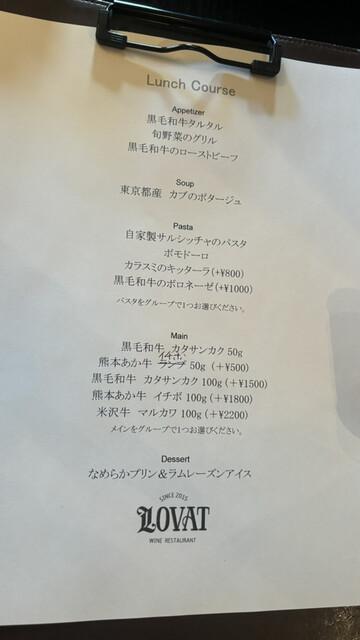 Lunch Course
Appetizer
黒毛和牛タルタル
旬野菜のグリル
黒毛和牛のローストビーフ
Soup
東京都産 カブのポタージュ
Pasta
自家製サルシッチャのパスタ
ポモドーロ
カラスミのキッターラ(+¥800)
黒毛和牛のボロネーゼ(+¥1000)
パスタをグループで1つお選びください。
Main
黒毛和牛 カタサンカク 50g
イチボ
熊本あか牛 ランプ 50g (+¥500)
黒毛和牛 カタサンカク 100g (+¥1500)
熊本あか牛 イチボ 100g (+¥1800)
米沢牛 マルカワ 100g (+¥2200)
メインをグループで1つお選びください。
Dessert
なめらかプリン&ラムレーズンアイス
SINCE 2015
LOVAT
WINE RESTAURANT